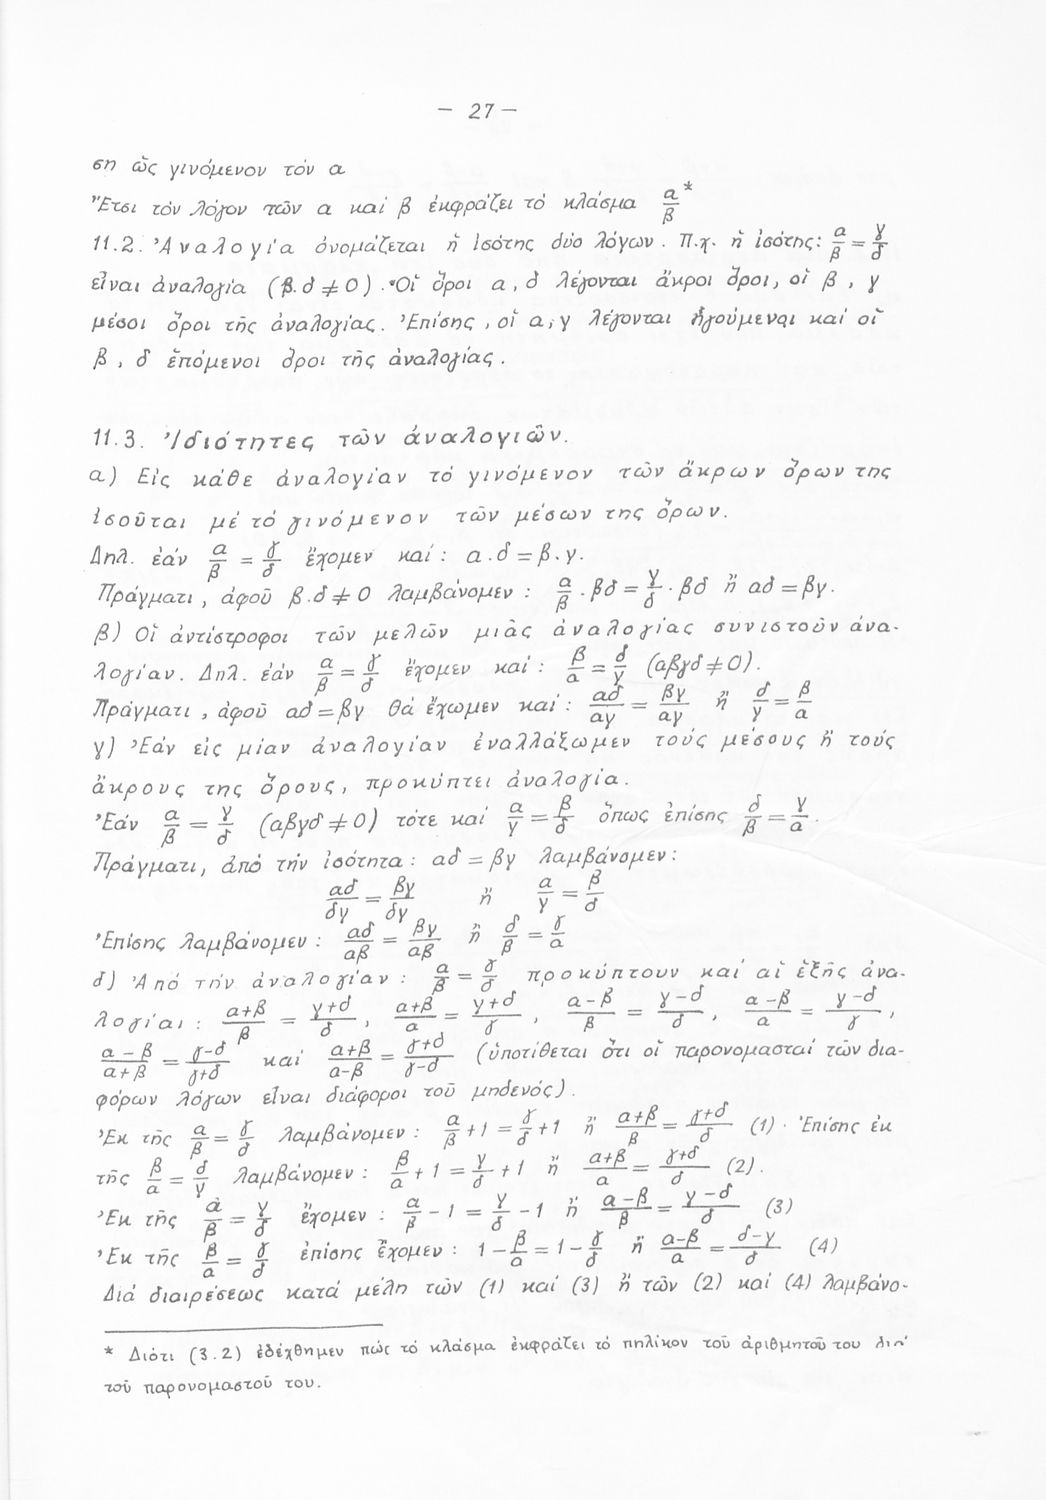 - 27 -
ση ὡς γινόμενον τόν α
Ἔτσι τόν λόγον τῶν α καί β ἐκφράζει τό κλάσμα α/β*
11.2. Ἀναλογία ὀνομάζεται ἡ ἰσότης δύο λόγων. Π.χ. ἡ ἰσότης: α/β = γ/δ
εἶναι ἀναλογία (β.δ ≠ 0). Οἱ ὅροι α, δ λέγονται ἄκροι ὅροι, οἱ β, γ
μέσοι ὅροι τῆς ἀναλογίας. Ἐπίσης, οἱ α, γ λέγονται ἡγούμενοι καί οἱ
β, δ ἑπόμενοι ὅροι τῆς ἀναλογίας.
11.3. Ἰδιότητες τῶν ἀναλογιῶν.
α) Εἰς κάθε ἀναλογίαν τό γινόμενον τῶν ἄκρων ὅρων της
ἰσοῦται μέ τό γινόμενον τῶν μέσων της ὅρων.
Δηλ. ἐάν α/β = γ/δ ἔχομεν καί: α.δ = β.γ.
Πράγματι, ἀφοῦ β.δ ≠ 0 λαμβάνομεν: α/β · βδ = γ/δ · βδ ἤ αδ = βγ.
β) Οἱ ἀντίστροφοι τῶν μελῶν μιᾶς ἀναλογίας συνιστοῦν ἀνα-
λογίαν. Δηλ. ἐάν α/β = γ/δ ἔχομεν καί: β/α = δ/γ (αβγδ ≠ 0).
Πράγματι, ἀφοῦ αδ = βγ θά ἔχωμεν καί: αδ/αγ = βγ/αγ ἤ δ/γ = β/α
γ) Ἐάν εἰς μίαν ἀναλογίαν ἐναλλάξωμεν τούς μέσους ἤ τούς
ἄκρους της ὅρους, προκύπτει ἀναλογία.
Ἐάν α/β = γ/δ (αβγδ ≠ 0) τότε καί α/γ = β/δ ὅπως ἐπίσης δ/β = γ/α.
Πράγματι, ἀπό τήν ἰσότητα: αδ = βγ λαμβάνομεν:
αδ/δγ = βγ/δγ ἤ α/γ = β/δ
Ἐπίσης λαμβάνομεν: αδ/αβ = βγ/αβ ἤ δ/β = γ/α
δ) Ἀπό τήν ἀναλογίαν: α/β = γ/δ προκύπτουν καί αἱ ἑξῆς ἀνα-
λογίαι: α+β/β = γ+δ/δ, α+β/α = γ+δ/γ, α-β/β = γ-δ/δ, α-β/α = γ-δ/γ,
α-β/α+β = γ-δ/γ+δ καί α+β/α-β = γ+δ/γ-δ (ὑποτίθεται ὅτι οἱ παρονομασταί τῶν δια-
φόρων λόγων εἶναι διάφοροι τοῦ μηδενός).
Ἐκ τῆς α/β = γ/δ λαμβάνομεν: α/β + 1 = γ/δ + 1 ἤ α+β/β = γ+δ/δ (1). Ἐπίσης ἐκ
τῆς β/α = δ/γ λαμβάνομεν: β/α + 1 = γ/δ + 1 ἤ α+β/α = γ+δ/δ (2).
Ἐκ τῆς α/β = γ/δ ἔχομεν: α/β - 1 = γ/δ - 1 ἤ α-β/β = γ-δ/δ (3)
Ἐκ τῆς β/α = γ/δ ἐπίσης ἔχομεν: 1 - β/α = 1 - γ/δ ἤ α-β/α = δ-γ/δ (4)
Διά διαιρέσεως κατά μέλη τῶν (1) καί (3) ἤ τῶν (2) καί (4) λαμβάνο-
* Διότι (3.2) ἐδέχθημεν πώς τό κλάσμα ἐκφράζει τό πηλίκον τοῦ ἀριθμητοῦ του διά
τοῦ παρονομαστοῦ του.